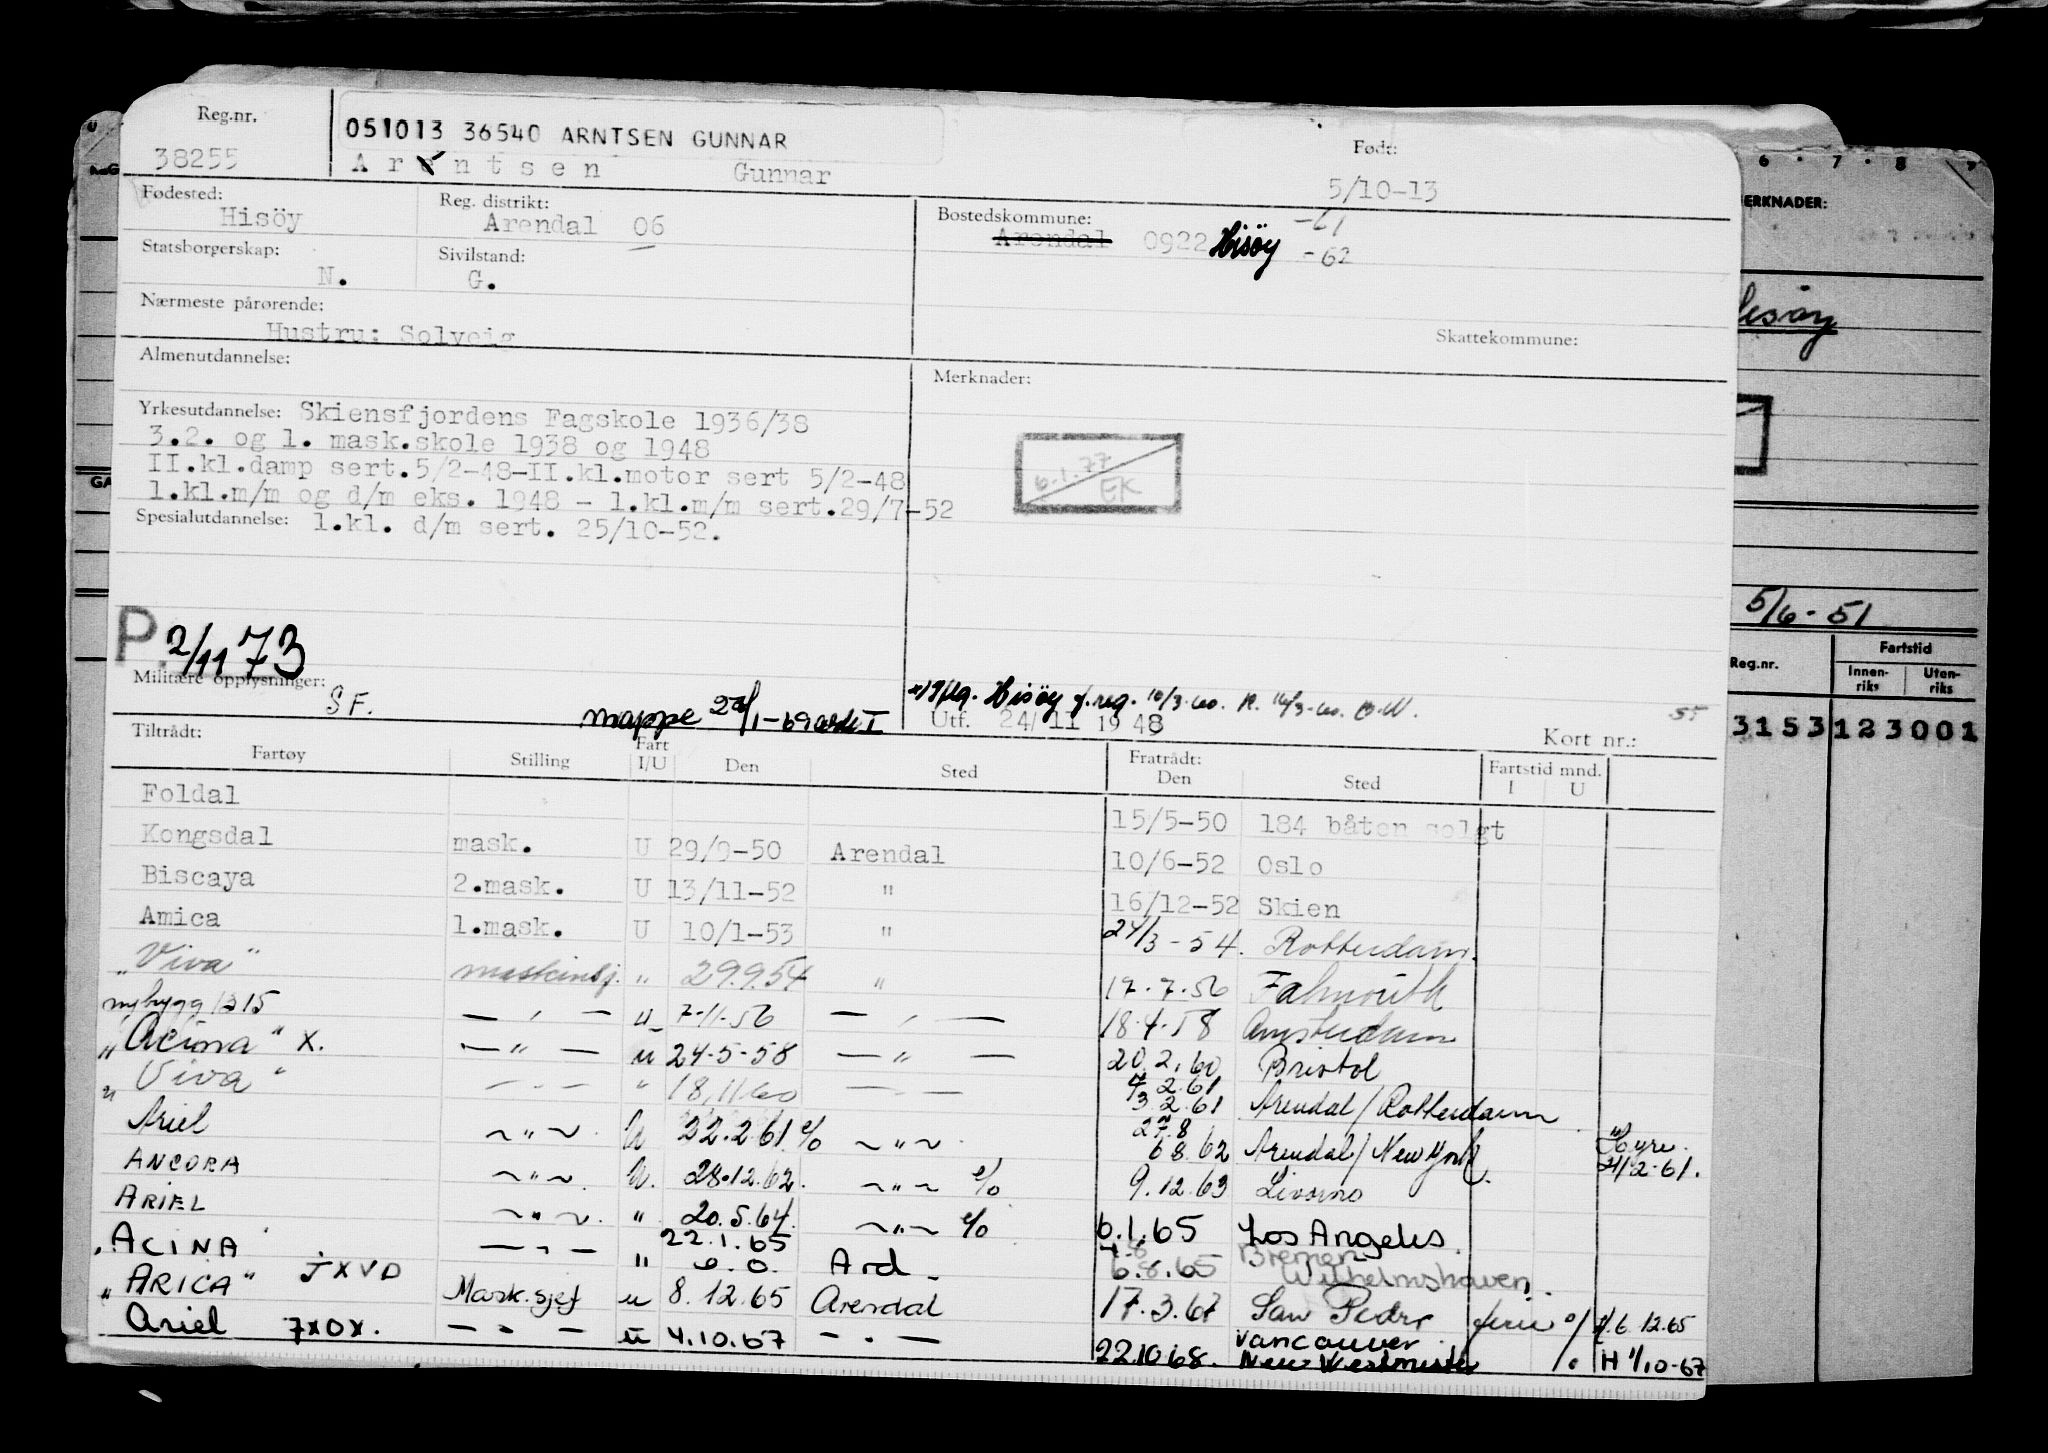 Reg.nr.
38255
051013 36540 ARNTSEN GUNNAR
Arentsen Gunnar
Født:
5/10-13
Fødested:
Hisöy
Reg. distrikt:
Arendal 06
Bostedskommune:
Arendal 0922 Hisöy -61
-62
Statsborgerskap:
N.
Sivilstand:
G.
Nærmeste pårørende:
Hustru: Solveig
Skattekommune:
Almenutdannelse:
Merknader:
Yrkesutdannelse: Skiensfjordens Fagskole 1936/38
3.2. og 1. mask.skole 1938 og 1948
II.kl.damp sert.5/2-48-II.kl.motor sert 5/2-48
1.kl.m/m og d/m eks. 1948 - 1.kl.m/m sert.29/7-52
Spesialutdannelse: 1.kl. d/m sert. 25/10-52.
6.1.77
EK
P. 2/11 73
Militære opplysninger:
S F.
mappe
Hisöy f.reg. 10/3-60.
Utf. 24/11 1948
55
Kort nr.:
Tiltrådt:
Fartøy Stilling Fart I/U Den Sted Fratrådt: Den Sted Fartstid mnd. I U
Foldal 15/5-50 184 båten solgt
Kongsdal mask. U 29/9-50 Arendal 10/6-52 Oslo
Biscaya 2.mask. U 13/11-52 " 16/12-52 Skien
Amica 1.mask. U 10/1-53 " 24/3-54. Rotterdam.
"Viva" maskinsj. " 29.9.54 " 17.7.56 Falmouth
nybygg 1315 — , — U 7-11-56 — , — 18.4.58 Amsterdam
"Acina" x. — " — u 24-5-58 — " — 20.2.60 Bristol
"Viva" — " — " 18.11.60 — — 4.2.61
3.2.61 Arendal/Rotterdam
Ariel ~ " ~ U 22.2.61 % ~ " ~ 27.8
6 8.62 Arendal/New York Hyre
21/2-61.
ANCORA ~ " ~ U. 28.12.62. ~ " ~ % 9.12.63 Livorno
ARIEL ~ " ~ " 20.5.64. ~ " ~ % 6.1.65 Los Angeles.
"ACINA" — " — " 22.1.65 Ard. 6.8.65 Bremen
Wilhelmshaven.
"ARICA" JXVD Mask.sjef u 8.12.65 Arendal 17.3.67 San Pedro ferie % H.6.12.65
Ariel 7XOX. — " — u 4.10.67 — " — 22.10 68. Vancouver
New Westminster % H 1/10-67
6 . 7 . 8
MERKNADER:
5/6-51
Reg.nr.
Fartstid
Innenriks
Utenriks
3153 123001